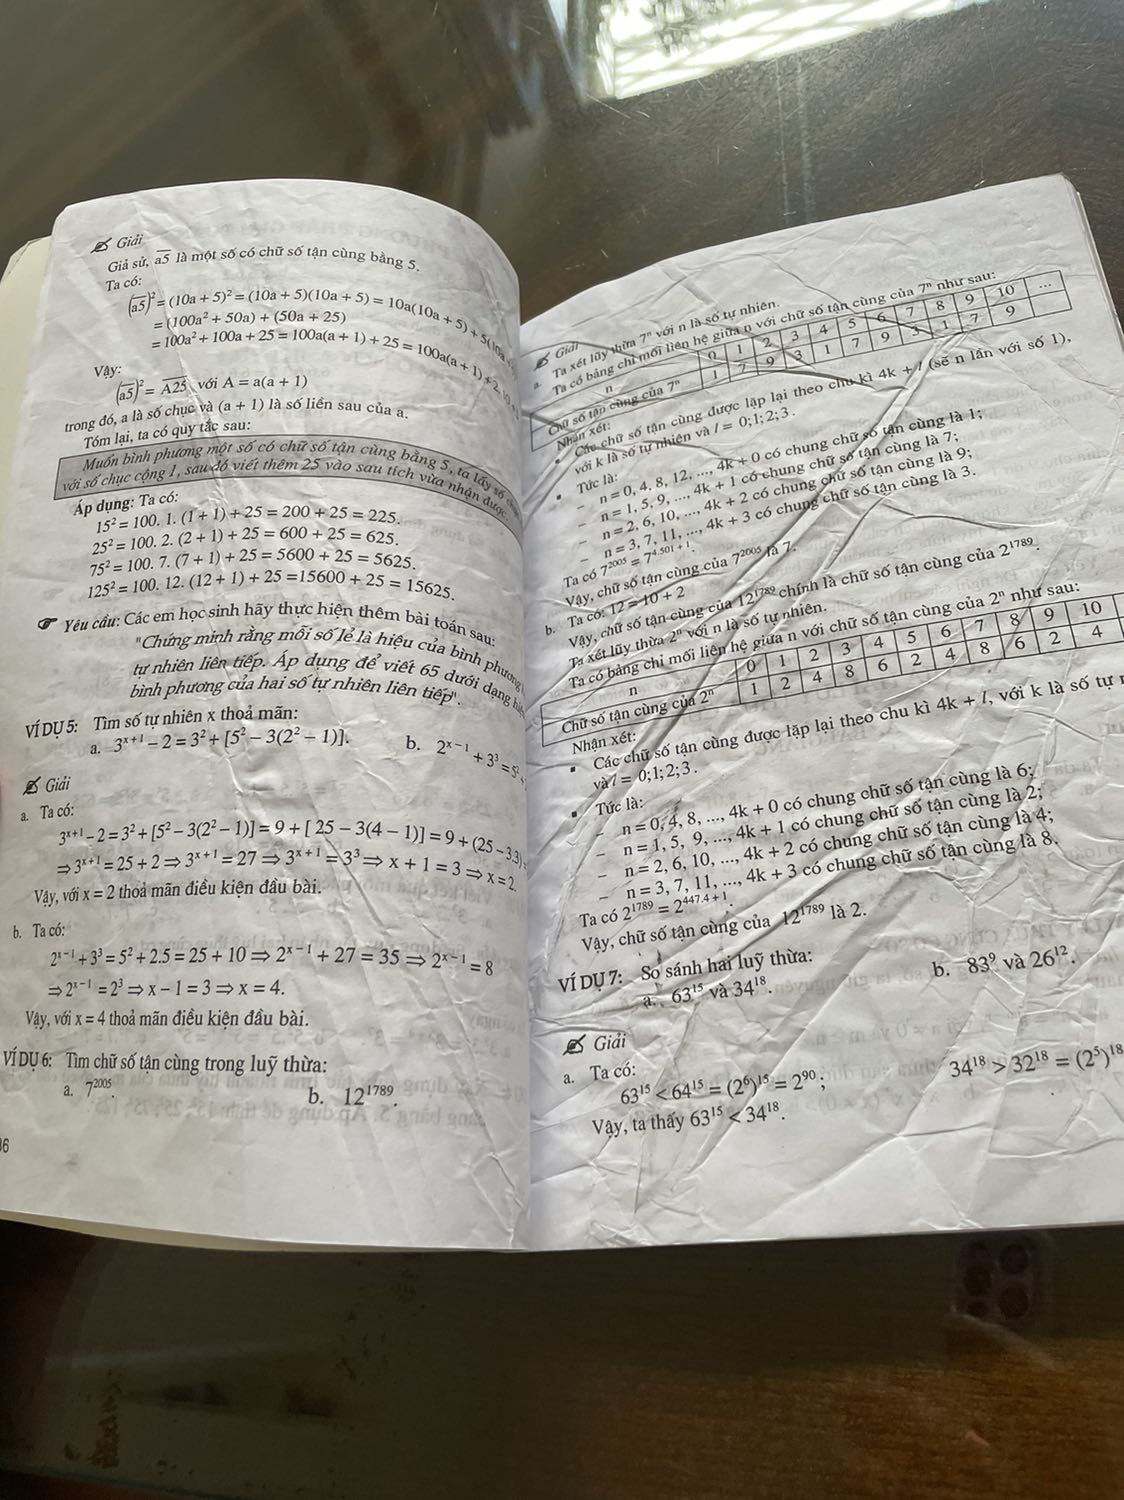 Giải
Giả sử, a̅5̅ là một số có chữ số tận cùng bằng 5.
Ta có:
(a̅5̅)² = (10a + 5)² = (10a + 5)(10a + 5) = 10a(10a + 5) + 5(10a
= (100a² + 50a) + (50a + 25)
= 100a² + 100a + 25 = 100a(a + 1) + 25 = 100a(a + 1) + 2.10
Vậy:
(a̅5̅)² = A̅2̅5̅ với A = a(a + 1)
trong đó, a là số chục và (a + 1) là số liền sau của a.
Tóm lại, ta có quy tắc sau:
Muốn bình phương một số có chữ số tận cùng bằng 5, ta lấy số
với số chục cộng 1, sau đó viết thêm 25 vào sau tích vừa nhận được.
Áp dụng: Ta có:
15² = 100. 1. (1 + 1) + 25 = 200 + 25 = 225.
25² = 100. 2. (2 + 1) + 25 = 600 + 25 = 625.
75² = 100. 7. (7 + 1) + 25 = 5600 + 25 = 5625.
125² = 100. 12. (12 + 1) + 25 =15600 + 25 = 15625.
Yêu cầu: Các em học sinh hãy thực hiện thêm bài toán sau:
"Chứng minh rằng mỗi số lẻ là hiệu của bình phương
tự nhiên liên tiếp. Áp dụng để viết 65 dưới dạng hiệu
bình phương của hai số tự nhiên liên tiếp".
VÍ DỤ 5: Tìm số tự nhiên x thoả mãn:
a. 3ˣ⁺¹ – 2 = 3² + [5² – 3(2² – 1)]. b. 2ˣ⁻¹ + 3³ = 5² +
Giải
a. Ta có:
3ˣ⁺¹ – 2 = 3² + [5² – 3(2² – 1)] = 9 + [ 25 – 3(4 – 1)] = 9 + (25 – 3.3)
⇒ 3ˣ⁺¹ = 25 + 2 ⇒ 3ˣ⁺¹ = 27 ⇒ 3ˣ⁺¹ = 3³ ⇒ x + 1 = 3 ⇒ x = 2.
Vậy, với x = 2 thoả mãn điều kiện đầu bài.
b. Ta có:
2ˣ⁻¹ + 3³ = 5² + 2.5 = 25 + 10 ⇒ 2ˣ⁻¹ + 27 = 35 ⇒ 2ˣ⁻¹ = 8
⇒ 2ˣ⁻¹ = 2³ ⇒ x – 1 = 3 ⇒ x = 4.
Vậy, với x = 4 thoả mãn điều kiện đầu bài.
VÍ DỤ 6: Tìm chữ số tận cùng trong luỹ thừa:
a. 7²⁰⁰⁵. b. 12¹⁷⁸⁹.
Giải
a. Ta xét lũy thừa 7ⁿ với n là số tự nhiên.
Ta có bảng chỉ mối liên hệ giữa n với chữ số tận cùng của 7ⁿ như sau:
n 0 1 2 3 4 5 6 7 8 9 10 ...
Chữ số tận cùng của 7ⁿ 1 7 9 3 1 7 9 3 1 7 9
Nhận xét:
▪ Các chữ số tận cùng được lặp lại theo chu kì 4k + l (sẽ n lần với số 1),
với k là số tự nhiên và l = 0;1;2;3.
▪ Tức là:
– n = 0, 4, 8, 12, ..., 4k + 0 có chung chữ số tận cùng là 1;
– n = 1, 5, 9, ..., 4k + 1 có chung chữ số tận cùng là 7;
– n = 2, 6, 10, ..., 4k + 2 có chung chữ số tận cùng là 9;
– n = 3, 7, 11, ..., 4k + 3 có chung chữ số tận cùng là 3.
Ta có 7²⁰⁰⁵ = 7⁴·⁵⁰¹ ⁺ ¹.
Vậy, chữ số tận cùng của 7²⁰⁰⁵ là 7.
b. Ta có: 12 = 10 + 2
Vậy, chữ số tận cùng của 12¹⁷⁸⁹ chính là chữ số tận cùng của 2¹⁷⁸⁹.
Ta xét lũy thừa 2ⁿ với n là số tự nhiên.
Ta có bảng chỉ mối liên hệ giữa n với chữ số tận cùng của 2ⁿ như sau:
n 0 1 2 3 4 5 6 7 8 9 10
Chữ số tận cùng của 2ⁿ 1 2 4 8 6 2 4 8 6 2 4
Nhận xét:
▪ Các chữ số tận cùng được lặp lại theo chu kì 4k + l, với k là số tự
và l = 0;1;2;3.
▪ Tức là:
– n = 0, 4, 8, ..., 4k + 0 có chung chữ số tận cùng là 6;
– n = 1, 5, 9, ..., 4k + 1 có chung chữ số tận cùng là 2;
– n = 2, 6, 10, ..., 4k + 2 có chung chữ số tận cùng là 4;
– n = 3, 7, 11, ..., 4k + 3 có chung chữ số tận cùng là 8.
Ta có 2¹⁷⁸⁹ = 2⁴⁴⁷·⁴ ⁺ ¹.
Vậy, chữ số tận cùng của 12¹⁷⁸⁹ là 2.
VÍ DỤ 7: So sánh hai luỹ thừa:
a. 63¹⁵ và 34¹⁸. b. 83⁹ và 26¹².
Giải
a. Ta có:
63¹⁵ < 64¹⁵ = (2⁶)¹⁵ = 2⁹⁰; 34¹⁸ > 32¹⁸ = (2⁵)¹⁸
Vậy, ta thấy 63¹⁵ < 34¹⁸.